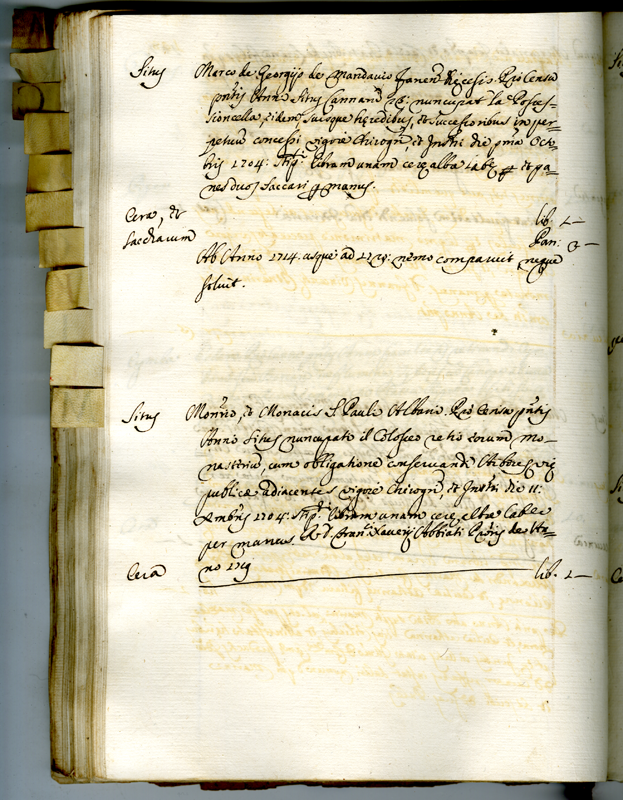 Situs Marco de Georgijs de Mandavio Dioecesis. Pro Censu
pntis Anni Situs nuncupat la Posses-
sioncella, eidem, suisque heredibus, et successoribus in per-
petuum concessi vigore Chirogri, et Instri die pma Octo-
bris 1704: libram unam cerae albae lab: et pa-
nes duos saccari manus.
Cerae, et lib. 1—
Saccharum Pan: 2—
Ab Anno 1714. usque ad 1719: nemo comparuit, neque
solvit.
Situs Monrio, et Monacis S. Pauli Albani. Pro Censu pntis
Anni Situs nuncupati il Colosseo retro eorum Mo-
nasterium, cum obligatione conservandi Arbores vię
publicae adiacentes vigore Chirogri, et Instri die 11:
Xmbris 1704: libram unam cerae albae labae
per manus Rd. Franci Xaverij Abbiati Prioris de An-
no 1719
Cera lib. 1—